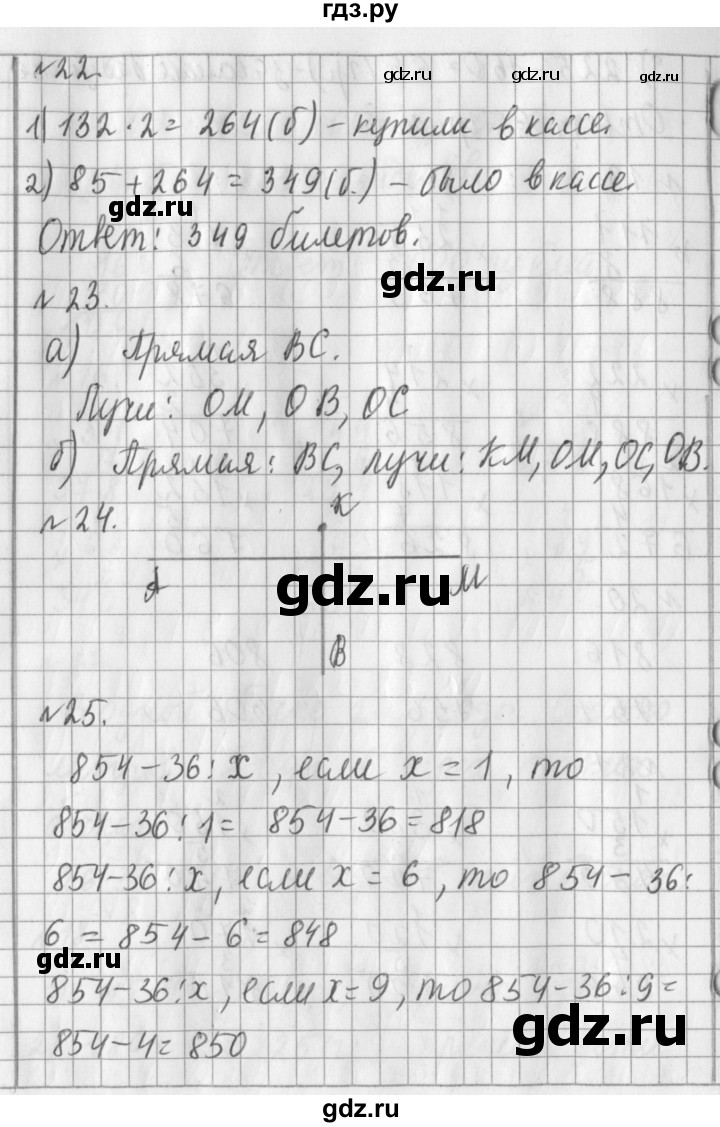 гдз.ру
№22.
gdz.ru gdz.ru
1) 132·2 = 264(б) – купили в кассе.
2) 85 + 264 = 349(б.) – было в кассе.
gdz.ru
Ответ: 349 билетов.
gdz.ru
№23.
а) Прямая BC.
Лучи: OM, OB, OC
б) Прямая: BC, лучи: KM, OM, OC, OB.
№24.
K
gdz.ru
A M
B
№25.
854 – 36 : x, если x = 1, то
854 – 36 : 1 = 854 – 36 = 818
854 – 36 : x, если x = 6, то 854 – 36 :
6 = 854 – 6 = 848
gdz.ru
854 – 36 : x, если x = 9, то 854 – 36 : 9 =
gdz.ru
854 – 4 = 850
gdz.ru